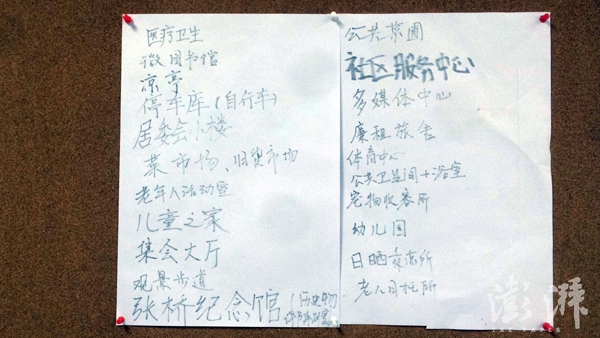 医疗卫生
微图书馆
凉亭
停车库(自行车)
居委会小楼
菜市场、旧货市场
老年人活动室
儿童之家
集会大厅
观景步道
张桥纪念馆(历史
公共菜圃
社区服务中心
多媒体中心
廉租旅舍
体育中心
公共卫生间+浴室
宠物收容所
幼儿园
日晒 所
老人日托所
澎湃